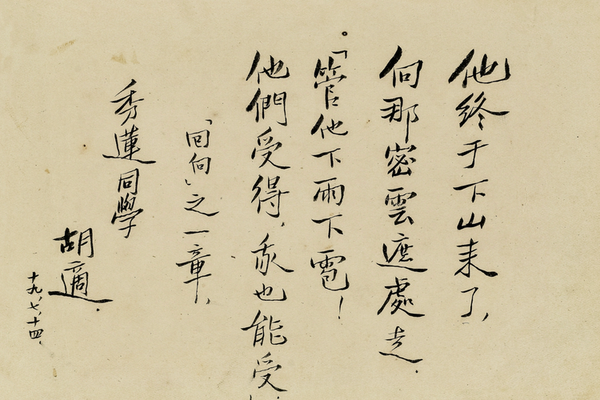 他終于下山来了,
向那密雲遮處走.
「管他下雨下雹!
他們受得,我也能受!
「回向」之一章.
秀蓮同學
胡適.
十九,七,十四.